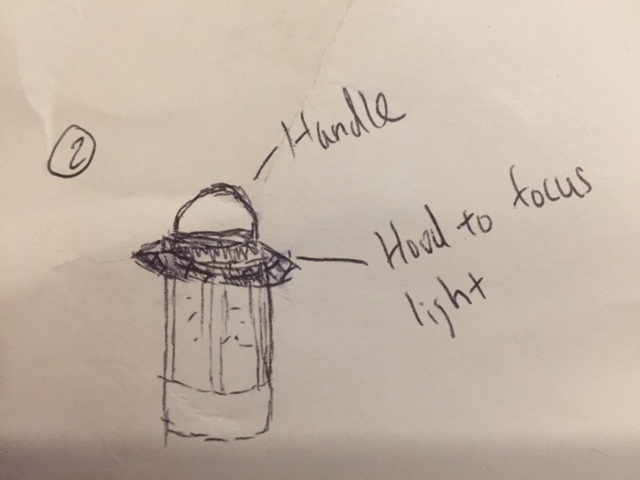 2
Handle
Hood to focus
light